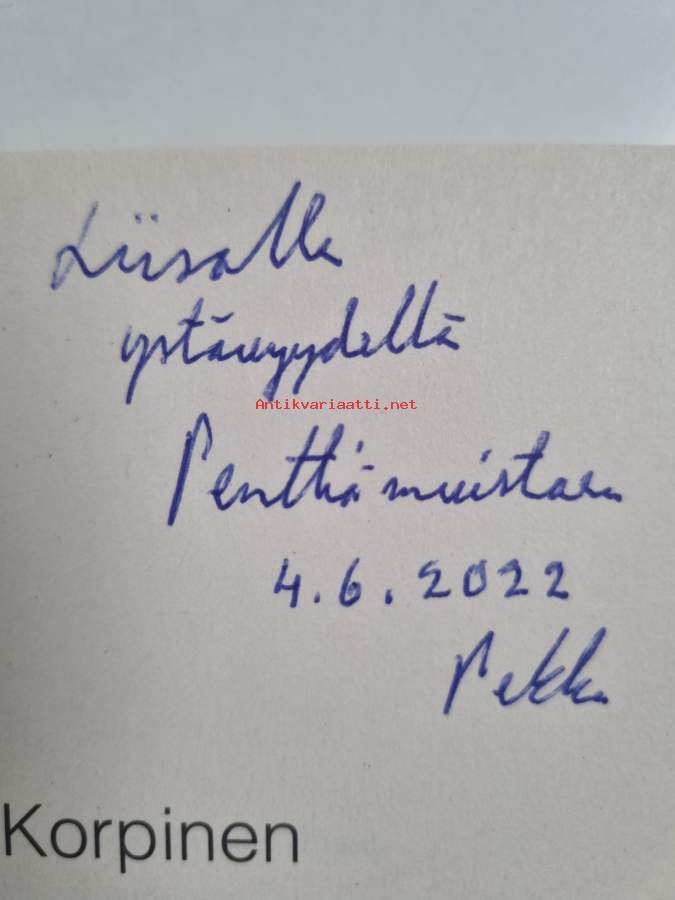 Liisalle
ystävyydellä
Antikvariaatti.net
Penttiä muistaen
4.6.2022
Pekka
Korpinen